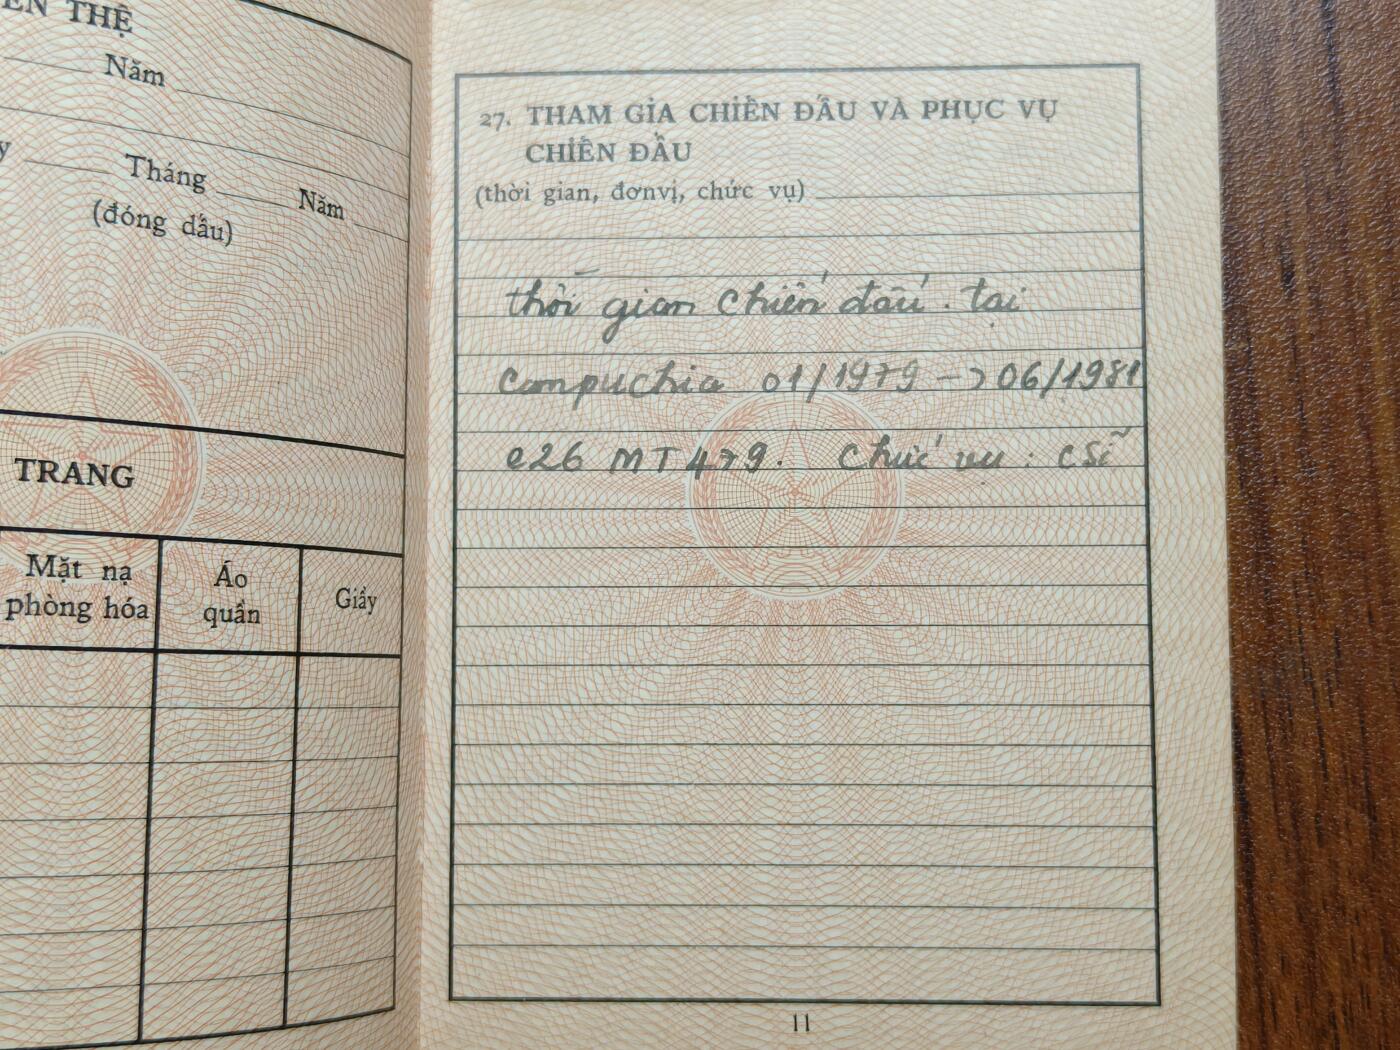 ỀN THỆ
Năm
Tháng Năm
(đóng dấu)
TRANG
Mặt nạ
phòng hóa
Áo
quần
Giầy
27. THAM GIA CHIẾN ĐẤU VÀ PHỤC VỤ
CHIẾN ĐẤU
(thời gian, đơnvị, chức vụ)
thời gian chiến đấu. tại
Campuchia 01/1979 -> 06/1981
e26 MT479. Chức vụ: c sĩ
11